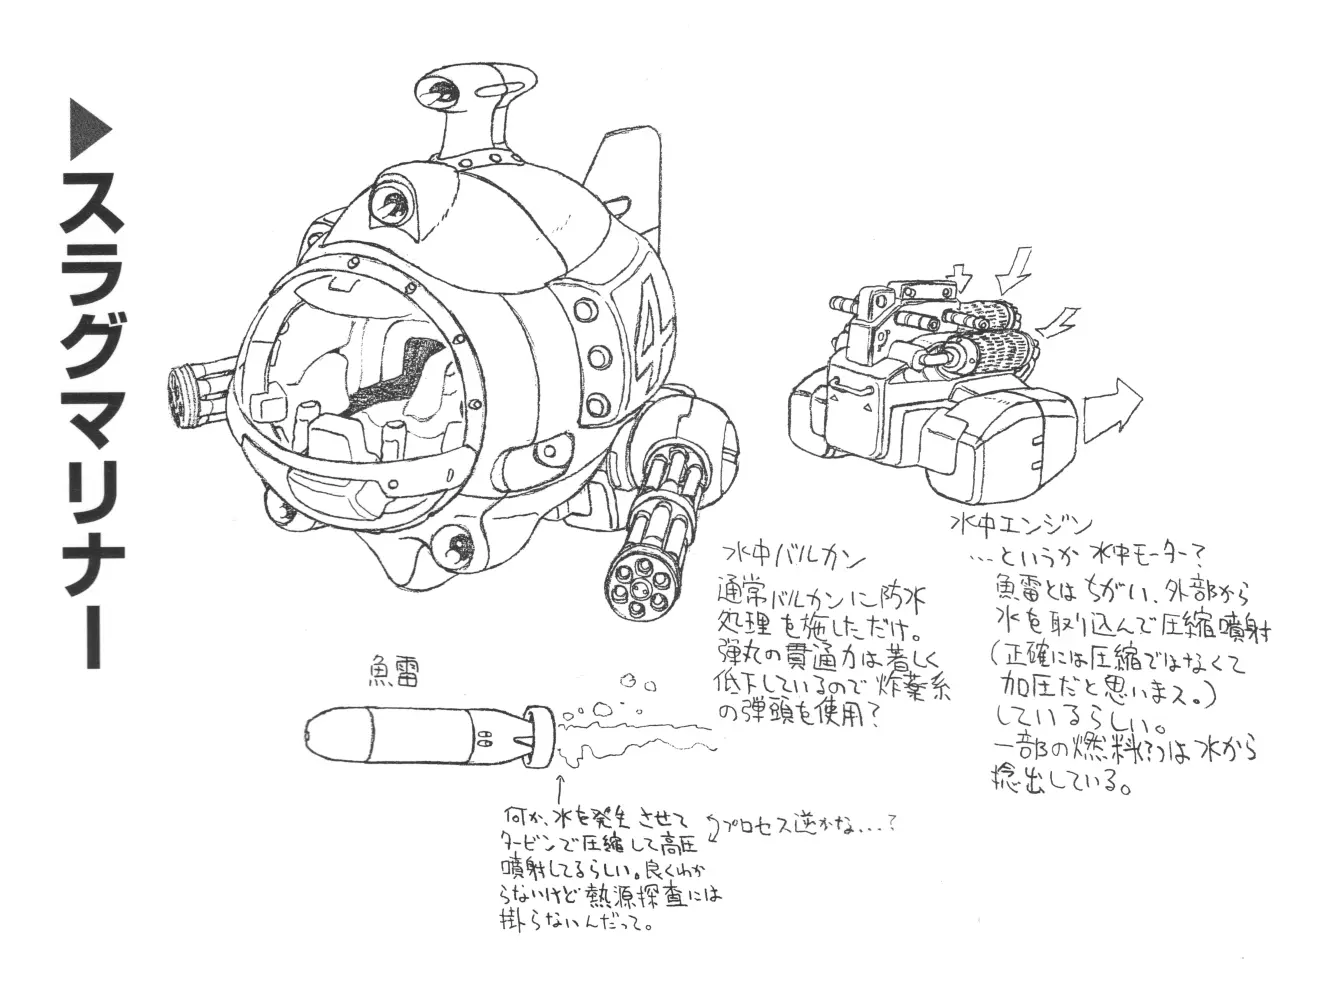 ▶スラグマリナー
4
水中バルカン
通常バルカンに防水
処理を施しただけ。
弾丸の貫通力は著しく
低下しているので炸薬系
の弾頭を使用?
水中エンジン
…というか水中モーター?
魚雷とはちがい、外部から
水を取り込んで圧縮噴射
(正確には圧縮ではなくて
加圧だと思いまス。)
しているらしい。
一部の燃料(?)は水から
捻出している。
魚雷
何か、水を発生させて
タービンで圧縮して高圧
噴射してるらしい。良くわか
らないけど熱源探査には
掛らないんだって。
プロセス逆かな…?